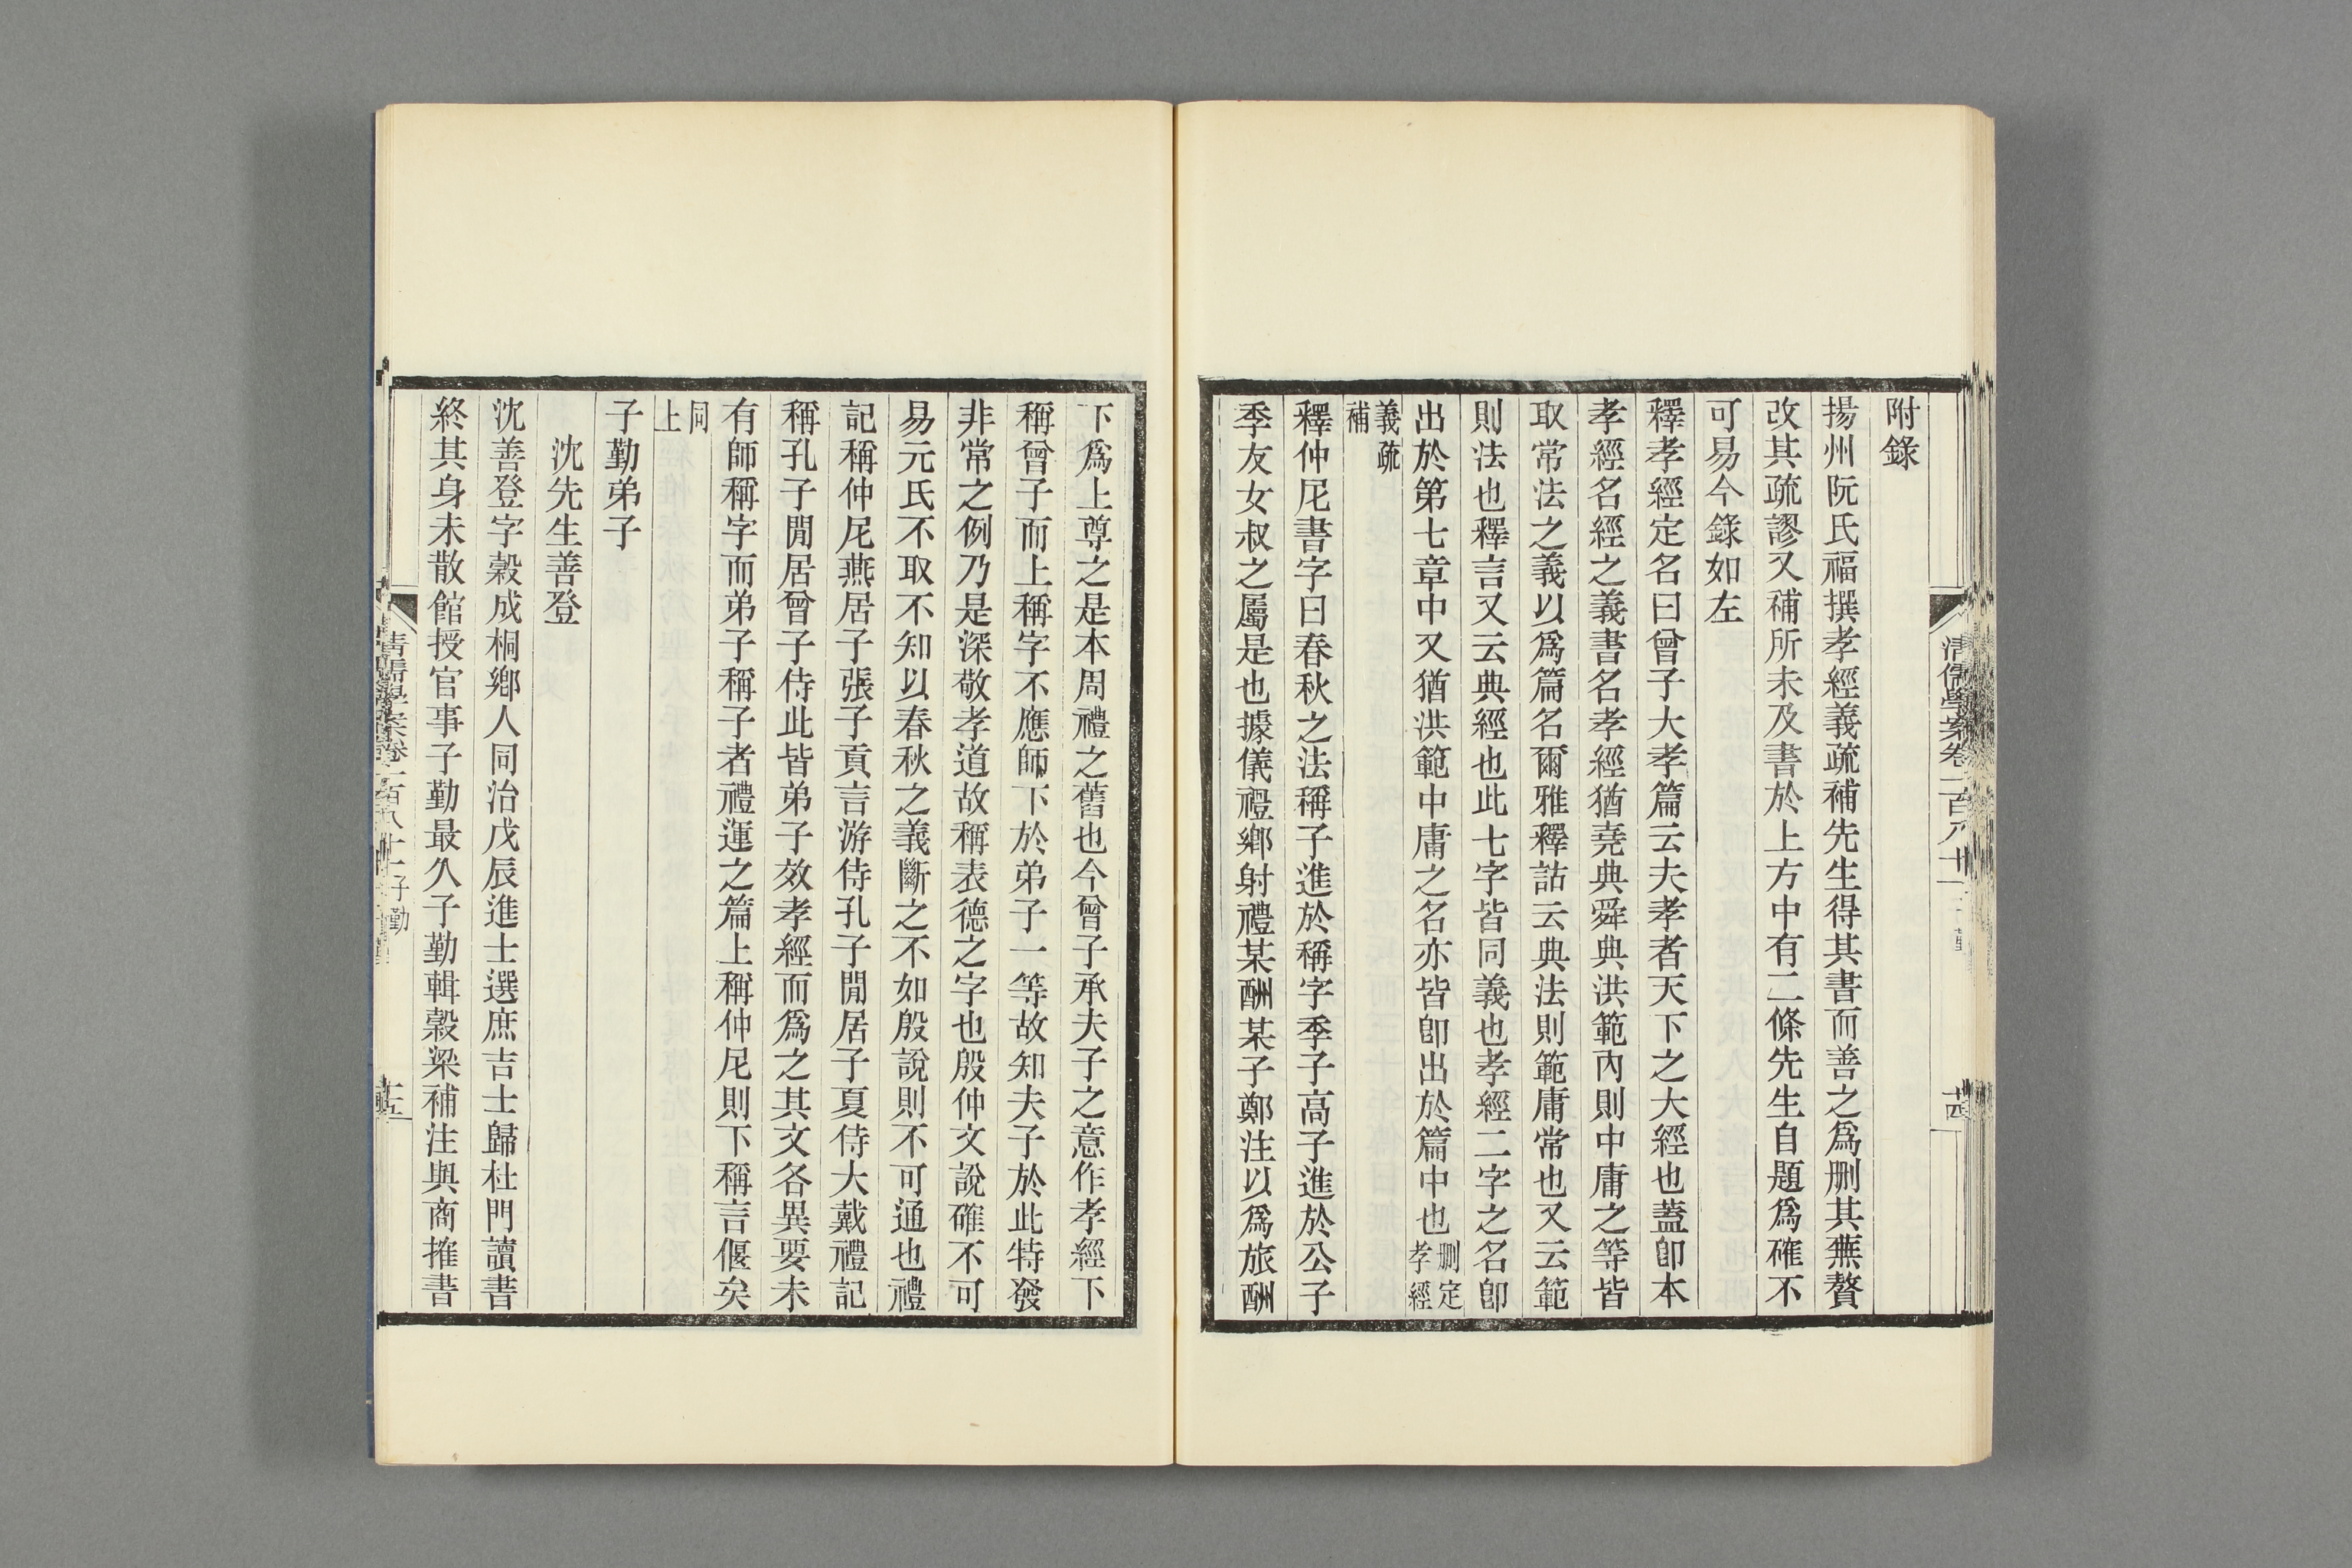 附錄
揚州阮氏福撰孝經義疏補先生得其書而善之爲刪其蕪贅
改其疏謬又補所未及書於上方中有二條先生自題爲確不
可易今錄如左
釋孝經定名曰曾子大孝篇云夫孝者天下之大經也蓋卽本
孝經名經之義書名孝經猶堯典舜典洪範內則中庸之等皆
取常法之義以爲篇名爾雅釋詁云典法則範庸常也又云範
則法也釋言又云典經也此七字皆同義也孝經二字之名卽
出於第七章中又猶洪範中庸之名亦皆卽出於篇中也刪定孝經
義疏補
釋仲尼書字曰春秋之法稱子進於稱字季子高子進於公子
季友女叔之屬是也據儀禮鄉射禮某酬某子鄭注以爲旅酬
清儒學案卷一百八十
十四
下爲上尊之是本周禮之舊也今曾子承夫子之意作孝經下
稱曾子而上稱字不應師下於弟子一等故知夫子於此特發
非常之例乃是深敬孝道故稱表德之字也殷仲文說確不可
易元氏不取不知以春秋之義斷之不如殷說則不可通也禮
記稱仲尼燕居子張子貢言游侍孔子閒居子夏侍大戴禮記
稱孔子閒居曾子侍此皆弟子效孝經而爲之其文各異要未
有師稱字而弟子稱子者禮運之篇上稱仲尼則下稱言偃矣
同上
子勤弟子
沈先生善登
沈善登字穀成桐鄉人同治戊辰進士選庶吉士歸杜門讀書
終其身未散館授官事子勤最久子勤輯穀梁補注與商搉書
清儒學案卷一百八十
子勤
十五